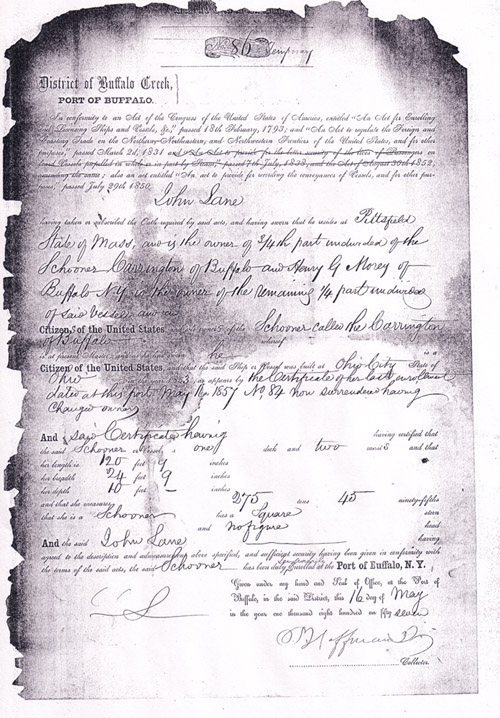 No. 86 Temporary
District of Buffalo Creek,
PORT OF BUFFALO.
In conformity to an Act of the Congress of the United States of America, entitled "An Act for Enrolling
and Licensing Ships and Vessels, &c," passed 18th February, 1793; and "An Act to regulate the Foreign and
Coasting Trade on the Northern, Northeastern, and Northwestern Frontiers of the United States, and for other
purposes," passed March 2d, 1831 and "An Act to provide for the better security of the lives of Passengers on
board Vessels propelled in whole or in part by Steam," passed 7th July, 1838; and the Act of August 30th 1852,
amending the same; also an act entitled "An act to provide for recording the conveyances of Vessels, and for other pur-
poses," passed July 29th 1850,
John Lane
having taken or subscribed the Oath required by said acts, and having sworn that he resides at Pittsfield
State of Mass, and is the owner of 3/4th part undivided of the
Schooner Carrington of Buffalo and Henry G Morey of
Buffalo N.Y. is the owner of the remaining 1/4 part undivided
of said vessel and
Citizens of the United States, and sole owners of the Schooner called the Carrington
of Buffalo whereof
is at present Master, and as he hath sworn he is a
Citizen of the United States, and that the said Ship or Vessel was built at Ohio City State of
Ohio as appears by the Certificate of her last enrolment
dated at this port May 1857 No 84 now surrendered having
Changed owner
And said Certificate having having certified that
the said Schooner or Vessel, has one deck and two masts and that
her length is 120 feet 9 inches
her breadth 24 feet 9 inches
her depth 10 feet - inches
and that she measures 275 tons 45 ninety-fifths
that she is a Schooner has a Square stern
and no figure head.
And the said John Lane having
agreed to the description and admeasurement above specified, and sufficient security having been given in conformity with
the terms of the said acts, the said Schooner has been duly Enrolled at the Port of Buffalo, N. Y.
Given under my hand and Seal of Office, at the Port of
Buffalo, in the said District, this 16 day of May
in the year one thousand eight hundred and fifty seven
Collector.